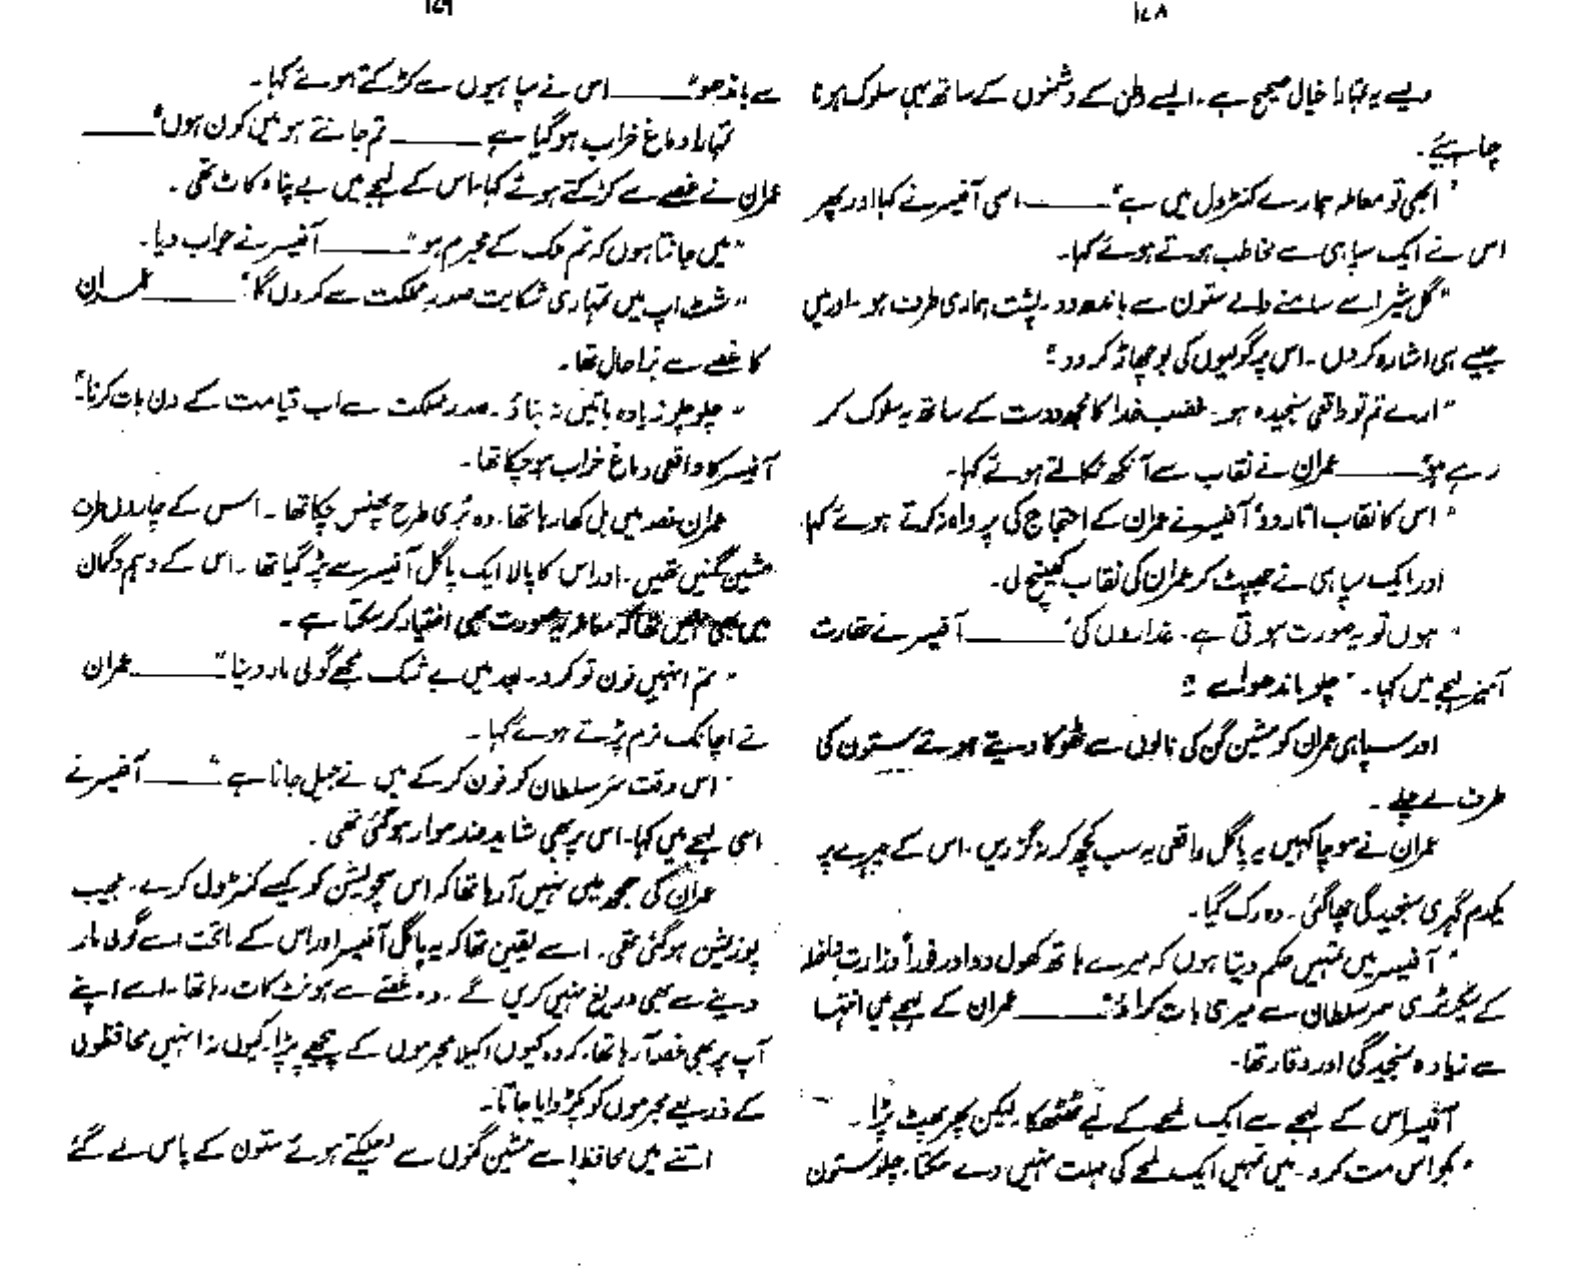 ۱۷۸
ویسے یہ تمہارا خیال صحیح ہے۔ ایسے وطن کے دشمنوں کے ساتھ یہی سلوک ہونا
چاہیئے۔
"ابھی تو معاملہ ہمارے کنٹرول میں ہے"ــــــ اسی آفیسر نے کہا اور پھر
اس نے ایک سپاہی سے مخاطب ہوتے ہوئے کہا۔
"گل شیر اسے سامنے والے ستون سے باندھ دو۔ پشت ہماری طرف ہو۔ اور میں
جیسے ہی اشارہ کردوں۔ اس پر گولیوں کی بوچھاڑ کر دو"
"ارے تم تو واقعی سنجیدہ ہو۔ غضب خدا کا مجھ دوست کے ساتھ یہ سلوک کر
رہے ہو"ــــــ عمران نے نقاب سے آنکھ نکالتے ہوئے کہا۔
"اس کا نقاب اتار دو" آفیسر نے عمران کے احتجاج کی پرواہ نہ کرتے ہوئے کہا۔
اور ایک سپاہی نے جھپٹ کر عمران کی نقاب کھینچ لی۔
"ہوں تو یہ صورت ہوتی ہے۔ غداروں کی"ــــــ آفیسر نے حقارت
آمیز لہجے میں کہا۔ "چلو باندھو اسے"
اور سپاہی عمران کو مشین گن کی نالوں سے ٹھوکا دیتے ہوئے ستون کی
طرف لے چلے۔
عمران نے سوچا کہیں یہ پاگل واقعی یہ سب کچھ کر نہ گزریں۔ اس کے چہرے پر
یکدم گہری سنجیدگی چھا گئی۔ وہ رک گیا۔
"آفیسر میں تمہیں حکم دیتا ہوں کہ میرے ہاتھ کھول دو اور فوراً وزارت داخلہ
کے سیکرٹری سر سلطان سے میری بات کراؤ"ــــــ عمران کے لہجے میں انتہا
سے زیادہ سنجیدگی اور وقار تھا۔
آفیسر اس کے لہجے سے ایک لمحے کے لیے ٹھٹھکا لیکن پھر پھٹ پڑا۔
"بکواس مت کرو۔ میں تمہیں ایک لمحے کی مہلت نہیں دے سکتا۔ چلو ستون
۱۷۹
سے باندھو"ــــــ اس نے سپاہیوں سے کڑکتے ہوئے کہا۔
تمہارا دماغ خراب ہو گیا ہے ــــــ تم جانتے ہو میں کون ہوں"ــــــ
عمران نے غصے سے کڑکتے ہوئے کہا۔ اس کے لہجے میں بے پناہ کاٹ تھی۔
"میں جانتا ہوں کہ تم ملک کے مجرم ہو"ــــــ آفیسر نے جواب دیا۔
"شٹ اپ میں تمہاری شکایت صدر مملکت سے کردوں گا"ــــــ عمران
کا غصے سے برا حال تھا۔
"چلو چلو زیادہ باتیں نہ بناؤ۔ صدر مملکت سے اب قیامت کے دن بات کرنا"
آفیسر کا واقعی دماغ خراب ہو چکا تھا۔
عمران غصہ میں بل کھا رہا تھا۔ وہ بری طرح پھنس چکا تھا۔ اس کے چاروں طرف
مشین گنیں تھیں۔ اور اس کا پالا ایک پاگل آفیسر سے پڑ گیا تھا۔ اس کے وہم و گمان
میں بھی نہیں تھا کہ معاملہ یہ صورت بھی اختیار کر سکتا ہے۔
"تم انہیں فون تو کرو۔ بعد میں بے شک مجھے گولی مار دینا"ــــــ عمران
نے اچانک نرم پڑتے ہوئے کہا۔
"اس وقت سر سلطان کو فون کرکے میں نے جیل جانا ہے"ــــــ آفیسر نے
اسی لہجے میں کہا۔ اس پر بھی شاید ضد سوار ہو گئی تھی۔
عمران کی سمجھ میں نہیں آ رہا تھا کہ اس سچویشن کو کیسے کنٹرول کرے۔ عجیب
پوزیشن ہو گئی تھی۔ اسے یقین تھا کہ یہ پاگل آفیسر اور اس کے ماتحت اسے گولی مار
دینے سے بھی دریغ نہیں کریں گے۔ وہ غصے سے ہونٹ کاٹ رہا تھا۔ اسے اپنے
آپ پر بھی غصہ آ رہا تھا۔ کہ وہ کیوں اکیلا مجرموں کے پیچھے پڑا۔ کیوں نہ انہیں محافظوں
کے ذریعے مجرموں کو پکڑوایا جاتا۔
اتنے میں محافظ اسے مشین گنوں سے دھکیلتے ہوئے ستون کے پاس لے گئے